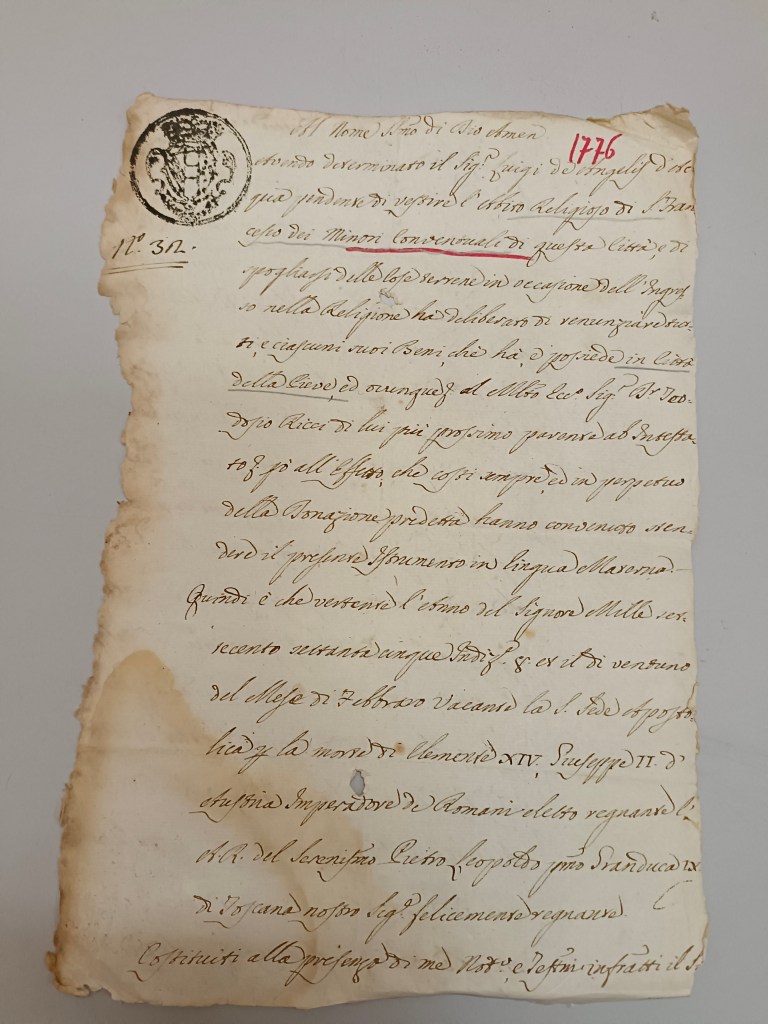 Al Nome SSmo di Dio Amen
1776
Avendo determinato il Sigr. Luigi de Angelis d'Ac
qua pendente di vestire l'Abito Religioso di S. Fran
cesco dei Minori Conventuali di questa Città, e di
No. 312.
spogliarsi delle Cose terrene in occasione dell'Ingres
so nella Religione ha deliberato di renunziare tut-
ti, e ciascuni suoi Beni, che ha, e possiede in Città
della Pieve, ed ovunque al Mlto Ecc. Sigr. Dr. Teo-
dosio Ricci di lui più prossimo parente ab Intesta-
to pò all'Effetto, che costi sempre, ed in perpetuo
della Donazione predetta hanno convenuto sten-
dere il presente Istrumento in lingua Materna.
Quindi è che vertente l'Anno del Signore Mille set-
tecento settanta cinque Indiz. 8. et il dì ventuno
del Mese di Febbraro Vacante la S. Sede Aposto-
lica p la morte di Clemente XIV, Giuseppe II. d'
Austria Imperadore de Romani eletto regnante l'
A. R. del Serenissmo Pietro Leopoldo pmo Granduca IX
di Toscana nostro Sigr. felicemente regnante.
Costituiti alla presenza di me Noto. e Testmi infratti il S